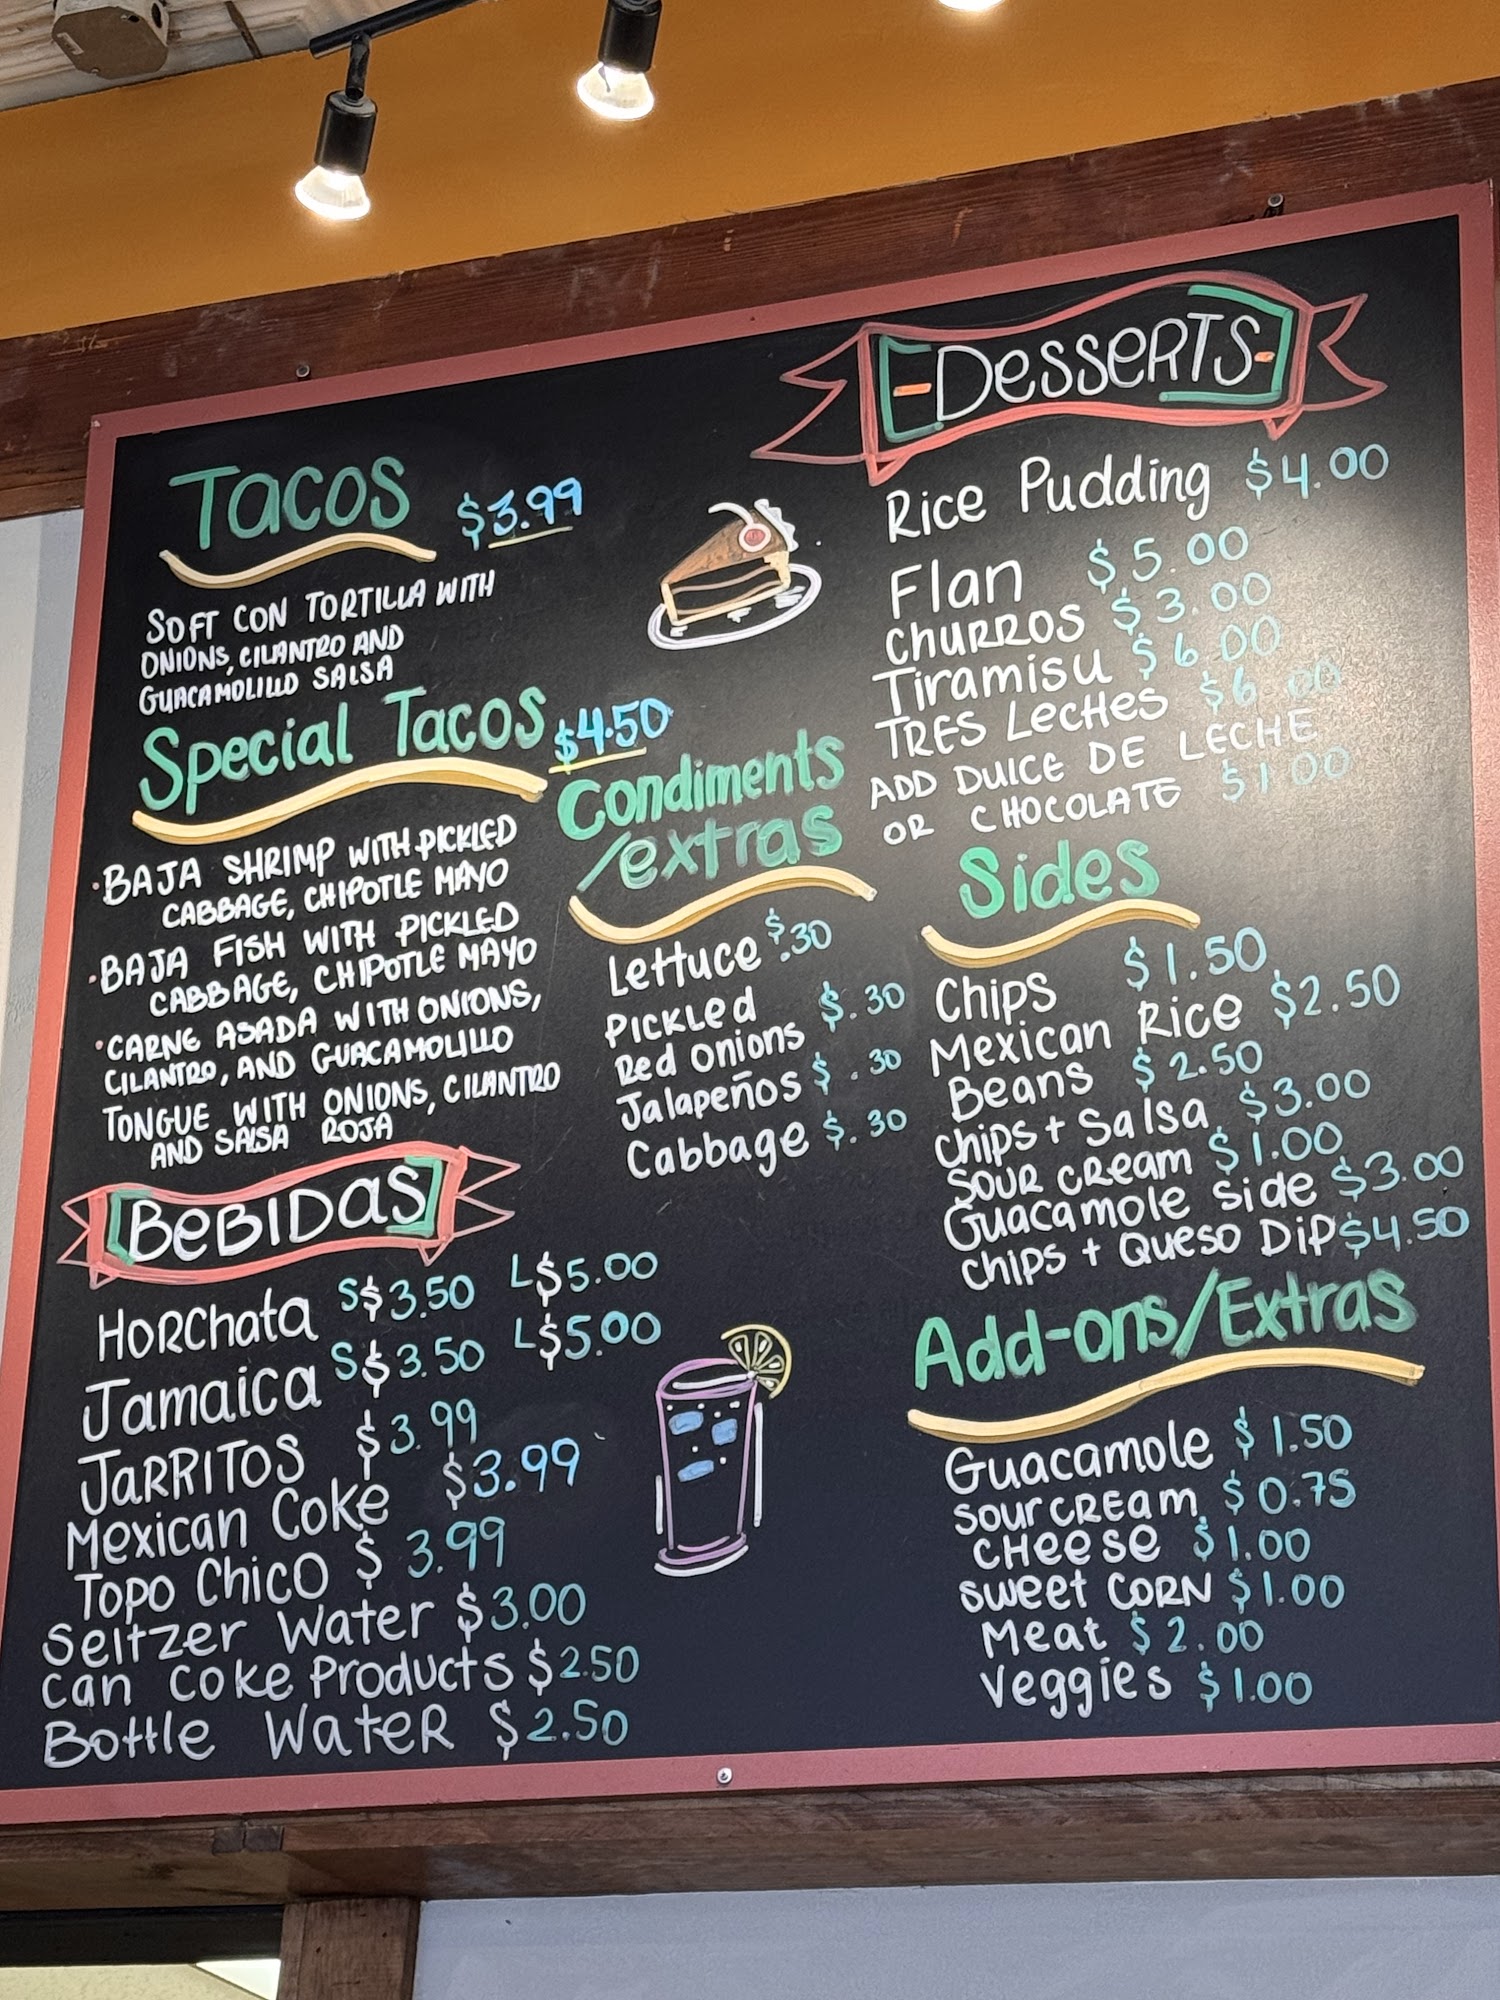 Tacos $3.99
SOFT CON TORTILLA WITH
ONIONS, CILANTRO AND
GUACAMOLILLO SALSA
Special Tacos $4.50
·BAJA SHRIMP WITH PICKLED
CABBAGE, CHIPOTLE MAYO
·BAJA FISH WITH PICKLED
CABBAGE, CHIPOTLE MAYO
·CARNE ASADA WITH ONIONS,
CILANTRO, AND GUACAMOLILLO
TONGUE WITH ONIONS, CILANTRO
AND SALSA ROJA
BEBIDAS
HORCHATA S$3.50 L$5.00
Jamaica S$3.50 L$5.00
JARRITOS $3.99
Mexican Coke $3.99
TOPO CHICO $3.99
Seltzer Water $3.00
Can Coke Products $2.50
Bottle Water $2.50
Condiments
/extras
Lettuce $.30
Pickled
Red onions $.30
Jalapeños $.30
Cabbage $.30
-DESSERTS-
Rice Pudding $4.00
Flan $5.00
CHURROS $3.00
Tiramisu $6.00
TRES LECHES $6.00
ADD DULCE DE LECHE
OR CHOCOLATE $1.00
Sides
Chips $1.50
Mexican Rice $2.50
Beans $2.50
Chips + Salsa $3.00
SOUR CREAM $1.00
Guacamole side $3.00
Chips + Queso Dip $4.50
Add-ons/Extras
Guacamole $1.50
SOUR CREAM $0.75
CHEESE $1.00
Sweet CORN $1.00
Meat $2.00
Veggies $1.00